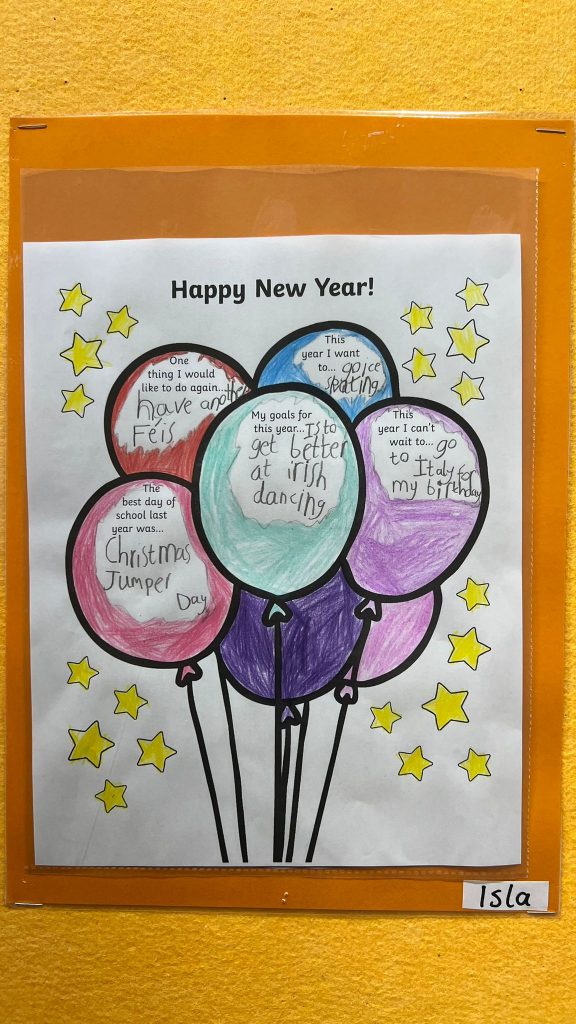 Happy New Year!
One
thing I would
like to do again...
have another
Féis
This
year I want
to... go ice
skating
My goals for
this year... Is to
get better
at irish
dancing
This
year I can't
wait to... go
to Italy for
my birthday
The
best day of
school last
year was...
Christmas
Jumper
Day
Isla